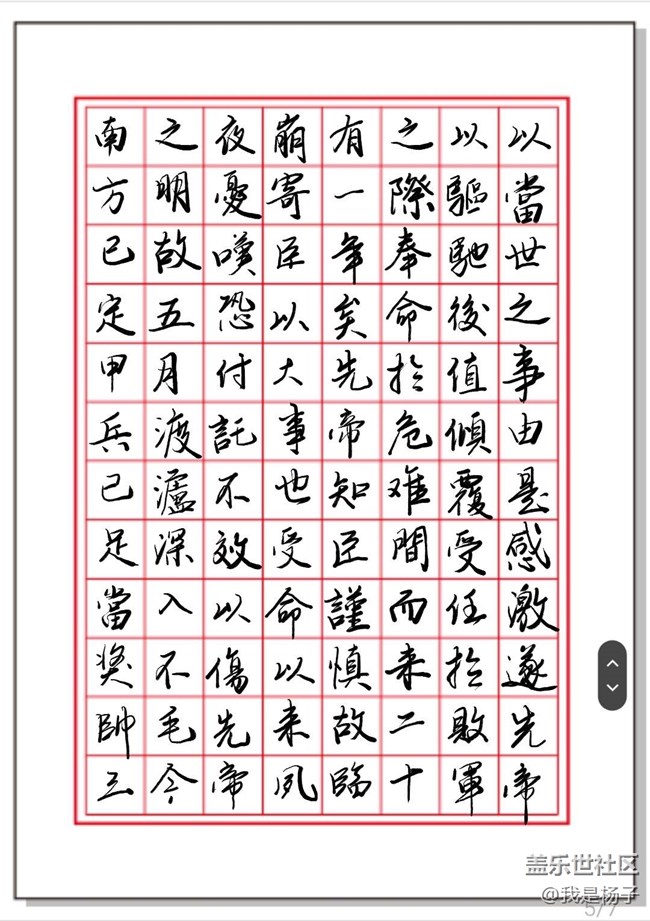 以當世之事由是感激遂先帝
以驅馳後值傾覆受任於敗軍
之際奉命於危难間而来二十
有一年矣先帝知臣謹慎故臨
崩寄臣以大事也受命以来夙
夜憂嘆恐付託不效以傷先帝
之明故五月渡瀘深入不毛今
南方已定甲兵已足當奬帥三
盖乐世社区
@我是杨子
5/7